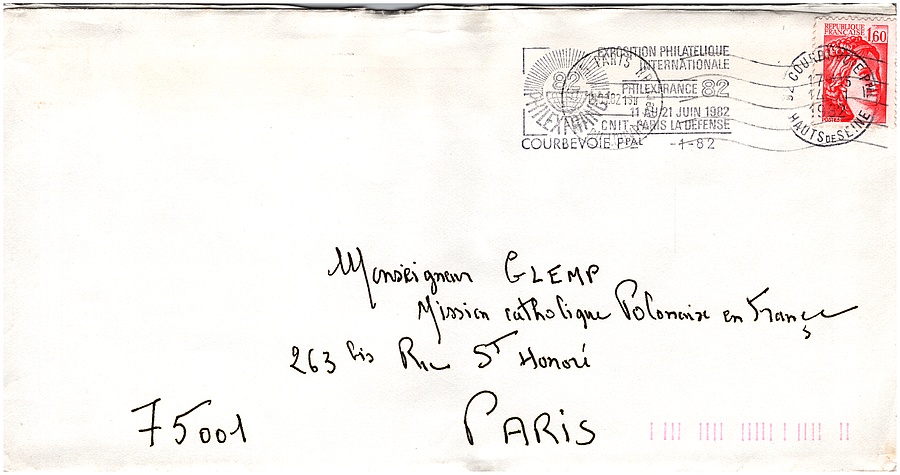 EXPOSITION PHILATELIQUE
INTERNATIONALE
PHILEXFRANCE 82
11 AU 21 JUIN 1982
CNIT-PARIS LA DEFENSE
COURBEVOIE PPAL -1-82
82
PHILEXFRANCE
PARIS
REPUBLIQUE
FRANÇAISE 1,60
POSTES
92 COURBEVOIE PPAL
17-
1982
HAUTS DE SEINE
Monseigneur GLEMP
Mission catholique Polonaise en France
263 bis Rue St Honoré
75001 PARIS